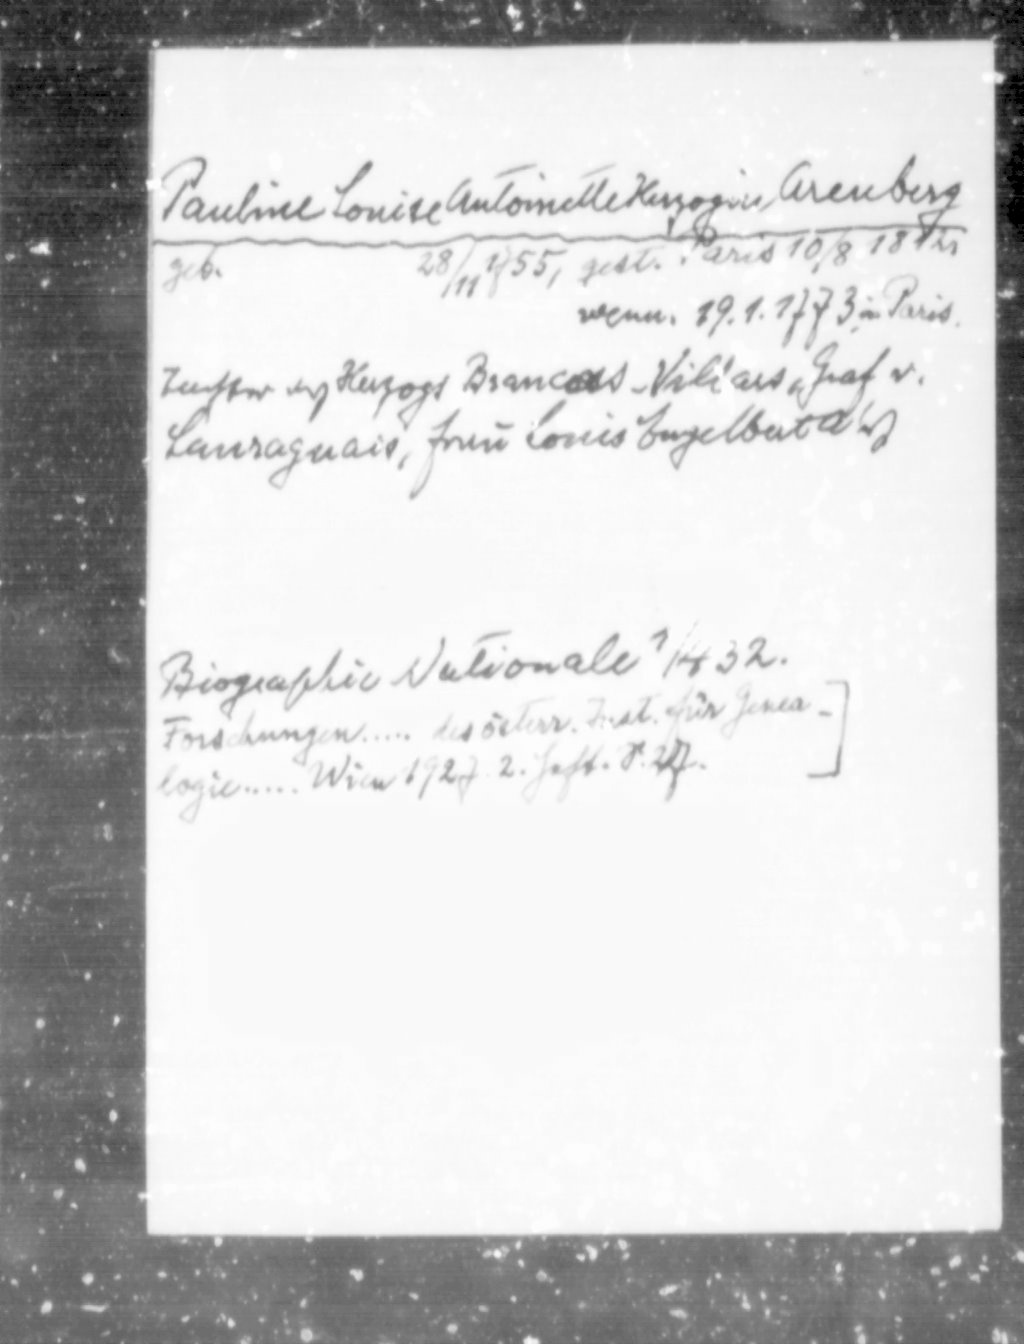 Pauline Louise Antoinette Herzogin Arenberg
geb. 28/11 1755, gest. Paris 10/8 1812.
verm. 19.1.1773 in Paris.
Tochter des Herzogs Brancas-Villars, Graf v.
Lauraguais, Frau Louis Engelbert A's
Biographie Nationale 1/ 432.
Forschungen..... des österr. Inst. für Genea-
logie..... Wien 1927. 2. Heft. S. 27.